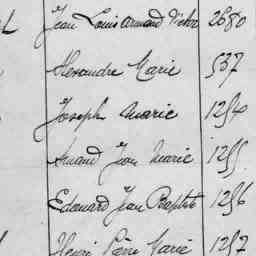 Jean Louis Armand Victor 2680
Alexandre Marie 537
Joseph Marie 1254
Armand Jean Marie 1255
Edouard Jean Baptiste 1256
Henri Pierre Marie 1257